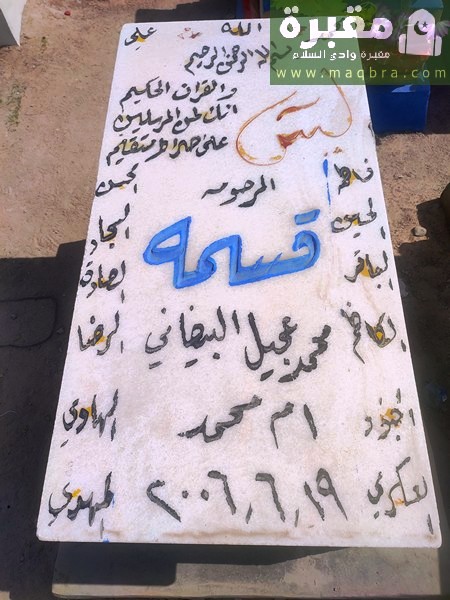 مقبرة
مقبرة وادي السلام
www.maqbra.com
الله
علي
بسم الله الرحمن الرحيم
يس
والقرآن الحكيم
انك لمن المرسلين
على صراط مستقيم
فاطمة
الحسن
المرحومه
الحسين
السجاد
قسمه
الباقر
الصادق
الكاظم
محمد عجيل البيضاني
الرضا
الجواد
ام محمد
الهادي
العسكري
٢٠٠٦,٦,١٩
المهدي